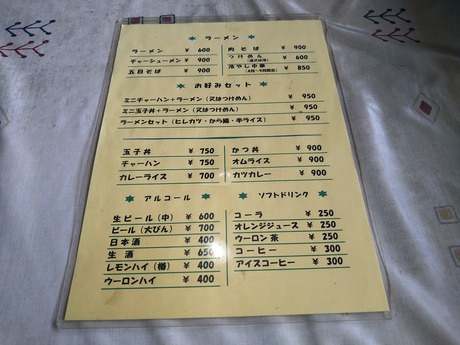 ラーメン
ラーメン ¥ 600
チャーシューメン ¥ 900
五目そば ¥ 900
肉そば ¥ 900
つけめん ¥ 600
(温又は冷)
冷やし中華 ¥ 850
(4月〜9月限定)
お好みセット
ミニチャーハン+ラーメン(又はつけめん) ¥ 950
ミニ玉子丼+ラーメン(又はつけめん) ¥ 950
ラーメンセット(ヒレカツ・から揚・半ライス) ¥ 950
玉子丼 ¥ 750
チャーハン ¥ 750
カレーライス ¥ 700
かつ丼 ¥ 900
オムライス ¥ 900
カツカレー ¥ 900
アルコール
生ビール(中) ¥ 600
ビール(大びん) ¥ 700
日本酒 ¥ 400
生酒 ¥ 650
レモンハイ(樽) ¥ 400
ウーロンハイ ¥ 400
ソフトドリンク
コーラ ¥ 250
オレンジジュース ¥ 250
ウーロン茶 ¥ 250
コーヒー ¥ 300
アイスコーヒー ¥ 300